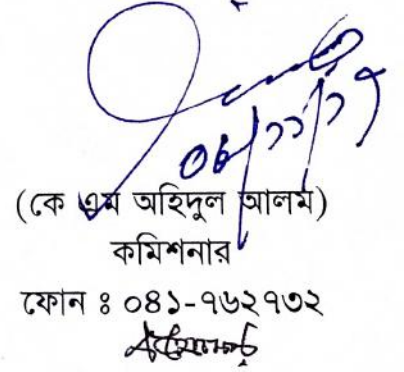 ০৮/১১/১৭
(কে এম অহিদুল আলম)
কমিশনার
ফোন ঃ ০৪১-৭৬২৭৩২